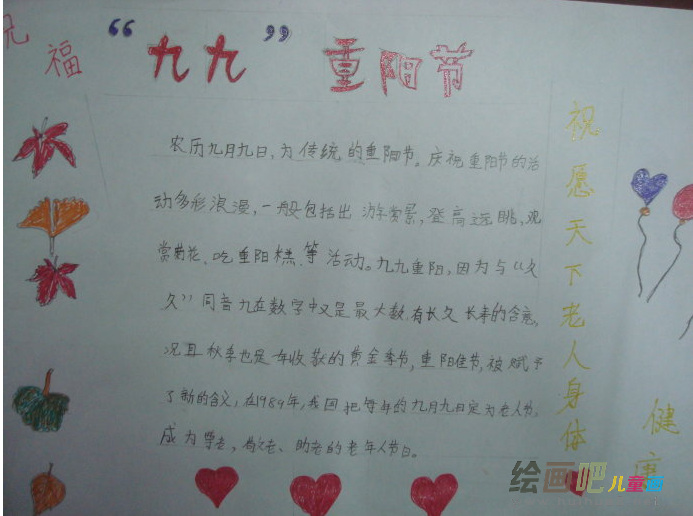 祝福
“九九”重阳节
农历九月九日,为传统的重阳节。庆祝重阳节的活
动多彩浪漫,一般包括出游赏景,登高远眺,观
赏菊花、吃重阳糕、等活动。九九重阳,因为与“久
久”同音九在数字中又是最大数,有长久长寿的含意,
况且秋季也是一年收获的黄金季节,重阳佳节,被赋予
了新的含义,在1989年,我国把每年的九月九日定为老人节,
成为尊老,敬老、助老的老年人节日。
祝愿天下老人身体
健康
绘画吧儿童画